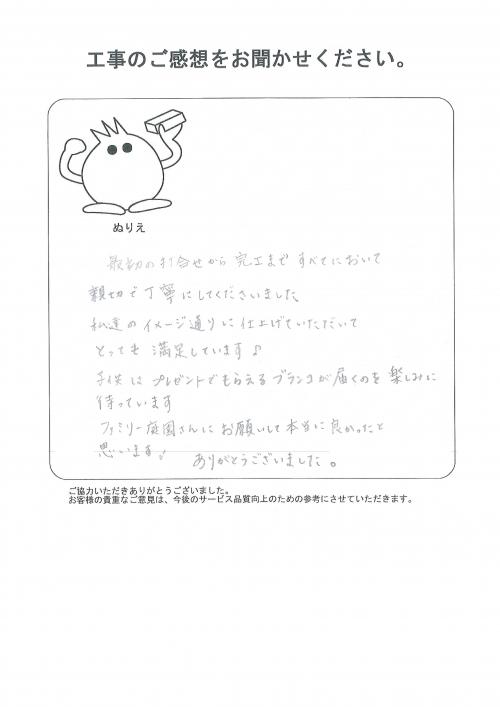 工事のご感想をお聞かせください。
ぬりえ
最初の打合せから 完工まで すべてにおいて
親切で丁寧にしてくださいました
私達のイメージ通りに仕上げていただいて
とっても 満足しています♪
子供は プレゼントでもらえるブランコが届くのを楽しみに
待っています
ファミリー庭園さんにお願いして本当に良かったと
思います♪ ありがとうございました。
ご協力いただきありがとうございました。
お客様の貴重なご意見は、今後のサービス品質向上のための参考にさせていただきます。